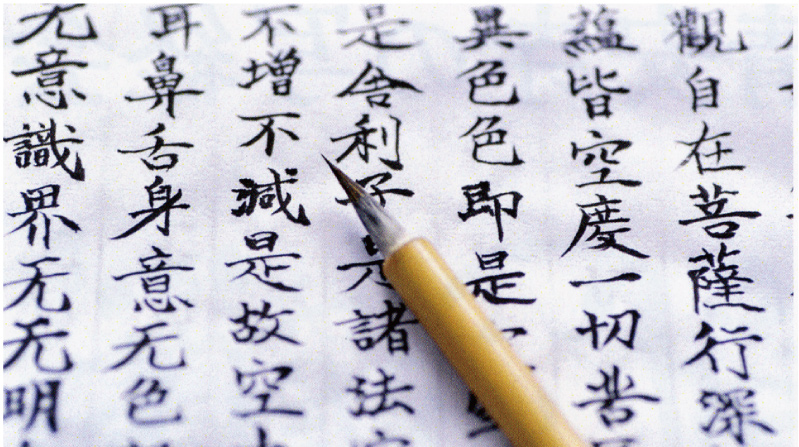 觀自在菩薩行深
蘊皆空度一切苦
異色色即是
是舍利子是諸法空
不增不減是故空
耳鼻舌身意无色
无意識界无无明